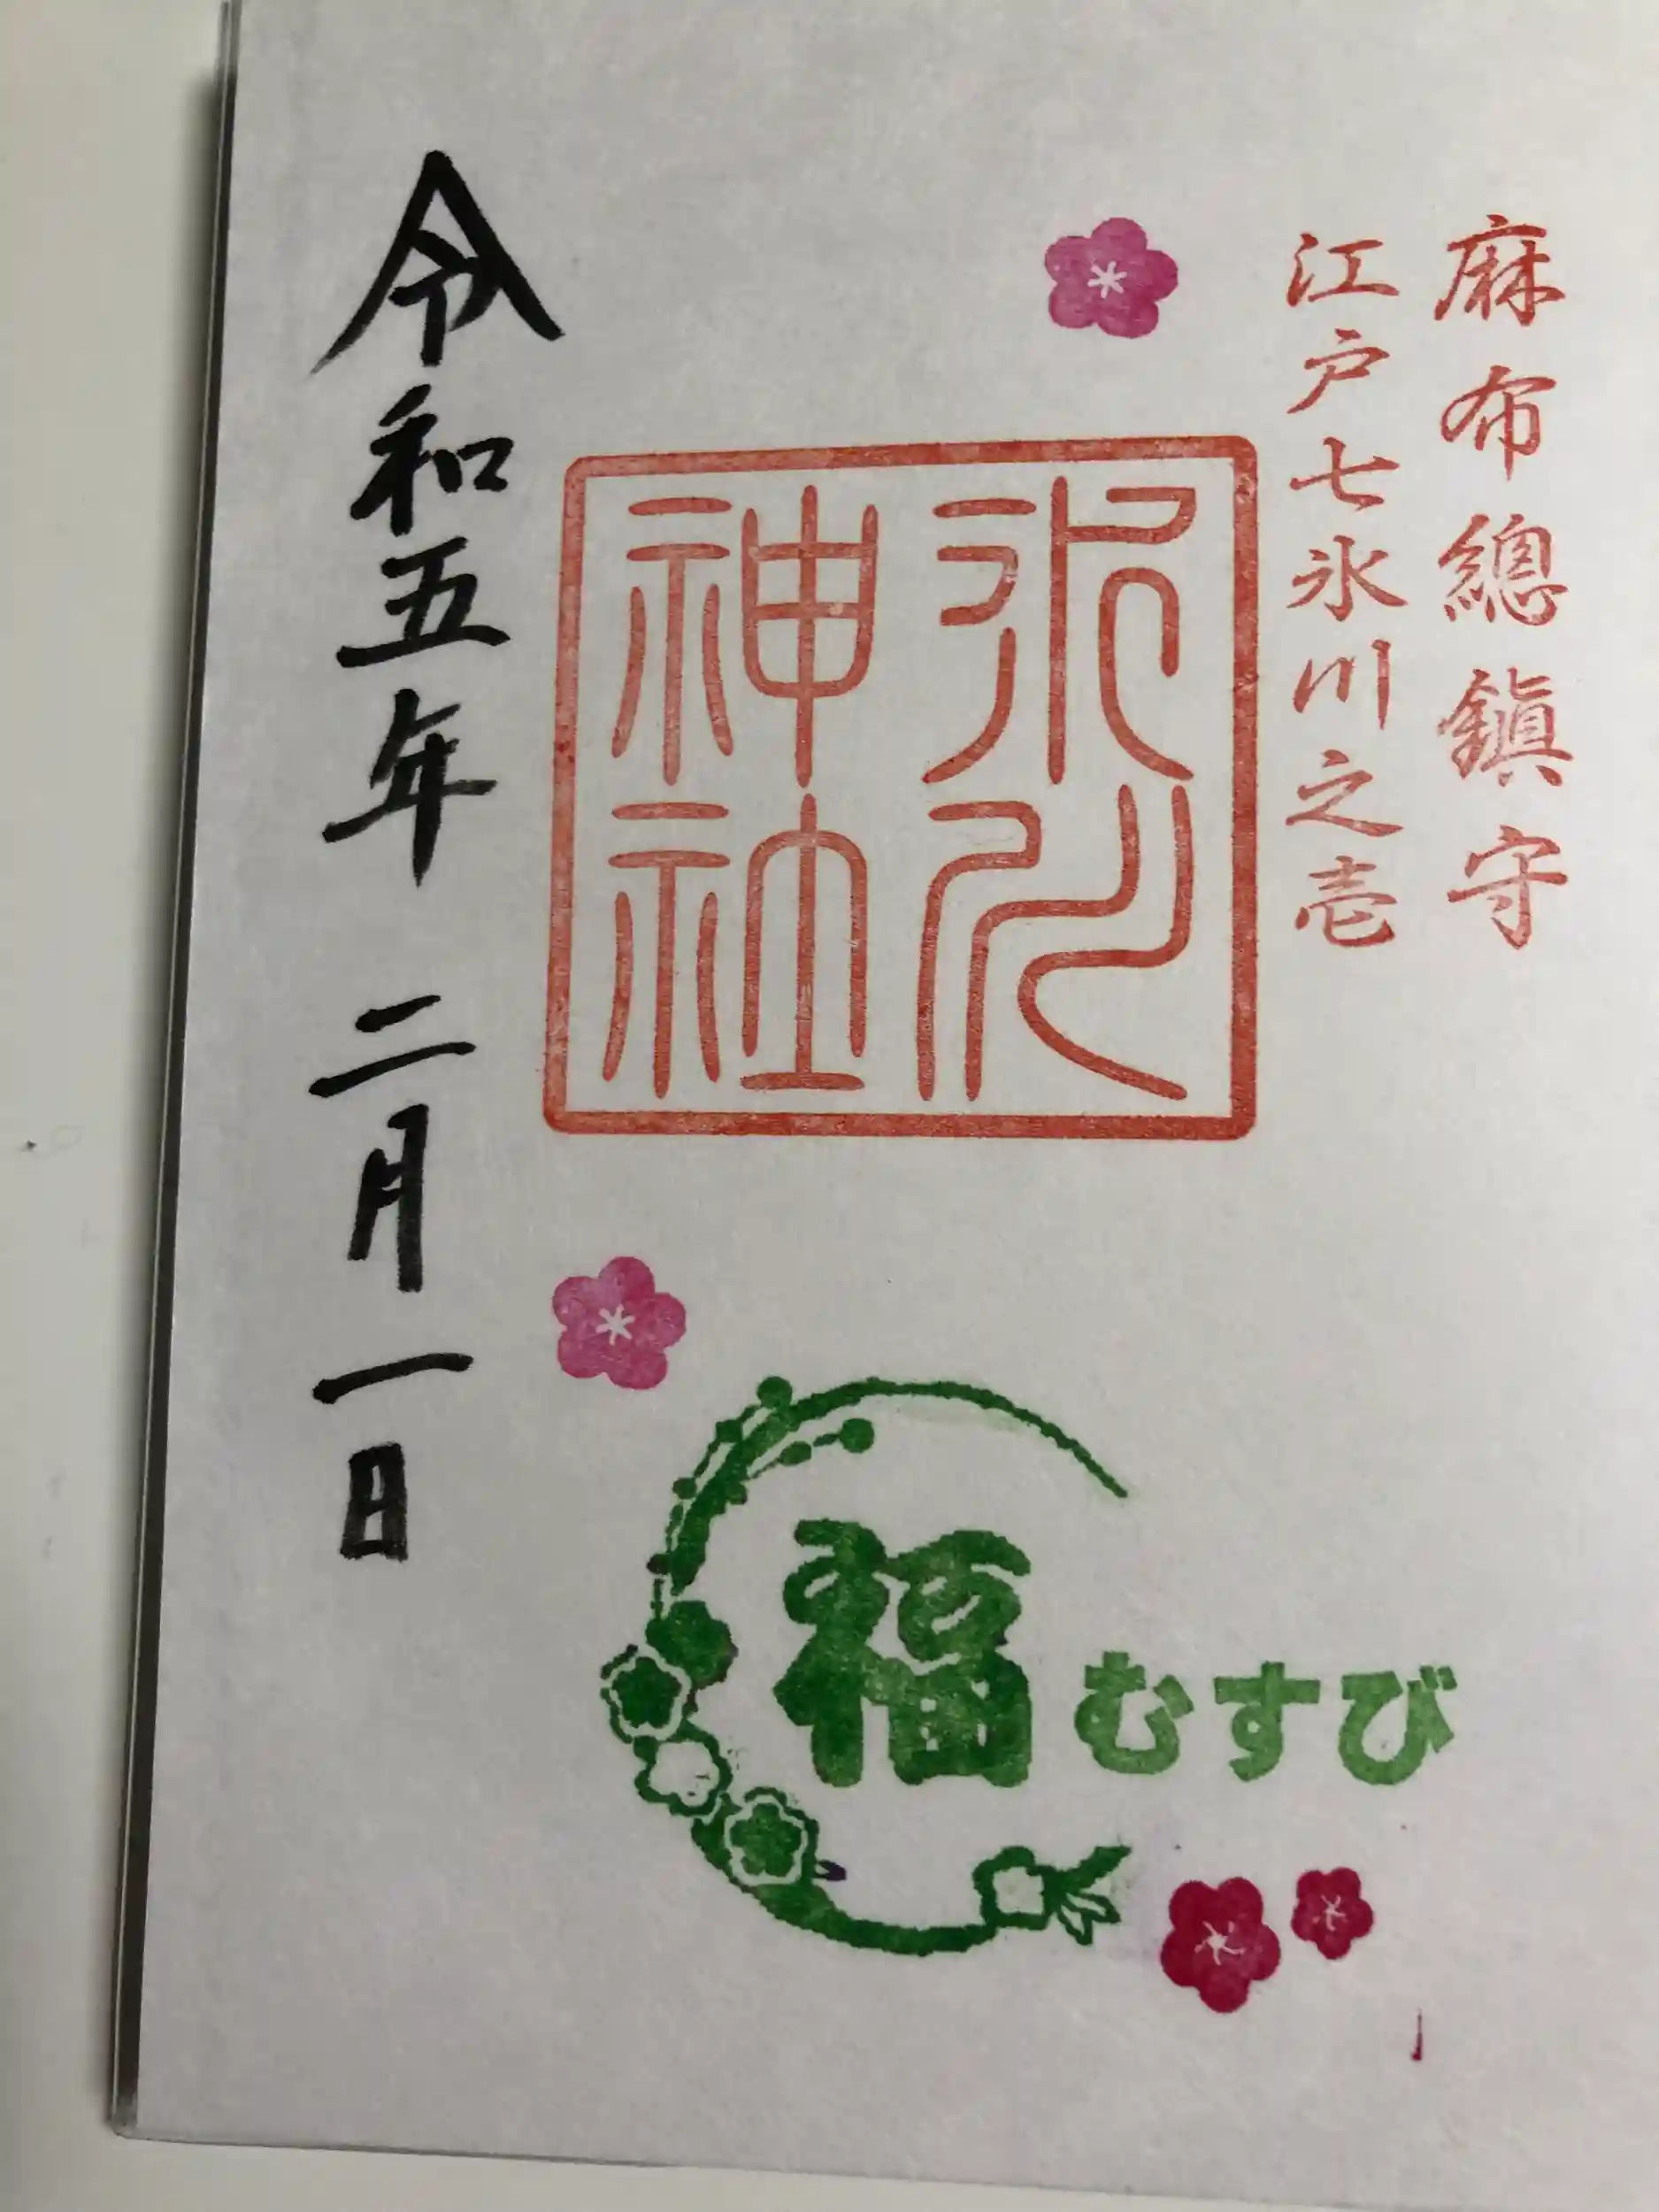 麻布總鎮守
江戸七氷川之壱
氷川
神社
福むすび
令和五年 二月一日